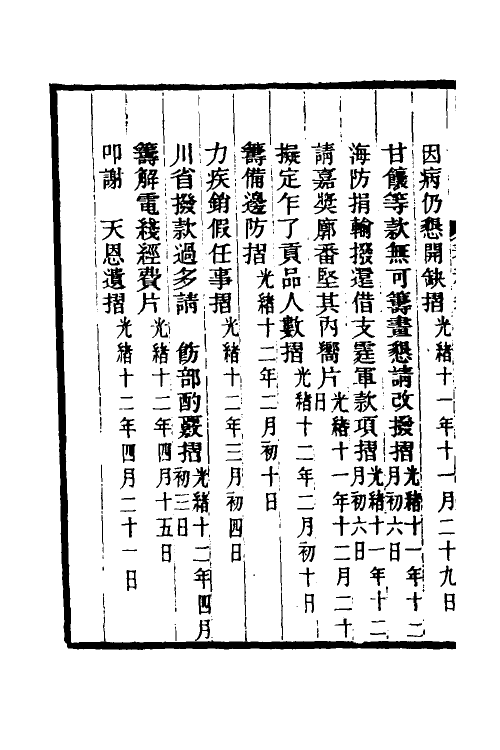 因病仍懇開缺摺光緒十一年十一月二十九日
甘饟等款無可籌畫懇請改撥摺光緒十一年十二月初六日
海防捐輸撥還借支霆軍款項摺光緒十一年十二月初六日
請嘉獎廓番堅其內嚮片光緒十一年十二月二十日
擬定乍了貢品人數摺光緒十二年二月初十日
籌備邊防摺光緒十二年二月初十日
力疾銷假任事摺光緒十二年三月初四日
川省撥款過多請 飭部酌覈摺光緒十二年四月初三日
籌解電綫經費片光緒十二年四月十五日
叩謝 天恩遺摺光緒十二年四月二十一日